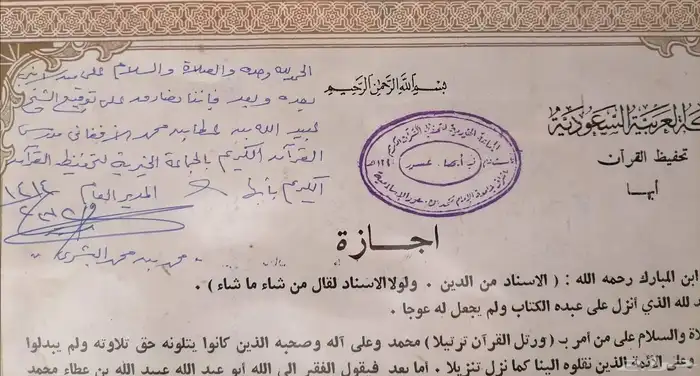 بسم الله الرحمن الرحيم
كة العربية السعودية
تحفيظ القرآن
أبها
الحمد لله وحده والصلاة والسلام على من لا نبي
بعده وبعد فإننا نصادق على توقيع الشيخ
عبيد الله بن عطاء محمد الأفغاني مدرس
القرآن الكريم بالجماعة الخيرية لتحفيظ القرآن
الكريم بأبها
المدير العام
محمد بن محمد البشري
الجماعة الخيرية لتحفيظ القرآن الكريم
أبها عسير
اجازة
ابن المبارك رحمه الله : ( الاسناد من الدين . ولولا الاسناد لقال من شاء ما شاء ) .
د لله الذي أنزل على عبده الكتاب ولم يجعل له عوجا .
لاة والسلام على من أمر بـ ( ورتل القرآن ترتيلا ) محمد وعلى آله وصحبه الذين كانوا يتلونه حق تلاوته ولم يبدلوا
وعلى الأئمة الذين نقلوه الينا كما نزل تنزيلا . أما بعد فيقول الفقير الى الله أبو عبد الله عبيد الله بن عطاء محمد